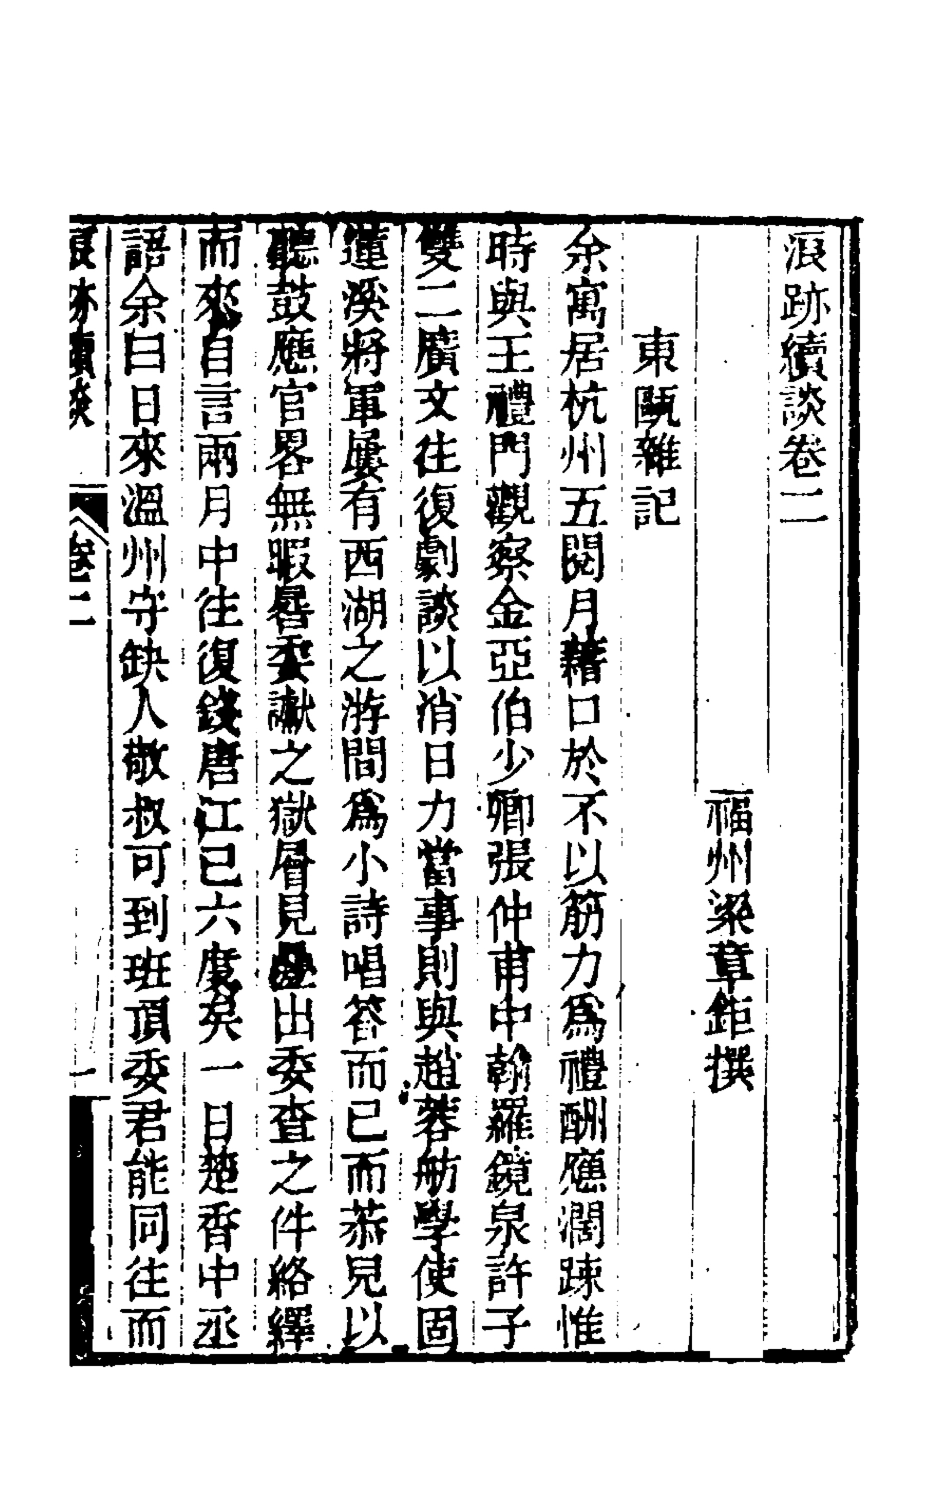 浪跡續談卷二
福州梁章鉅撰
東甌雜記
余寓居杭州五閱月藉口於不以筋力爲禮酬應濶踈惟
時與王禮門觀察金亞伯少卿張仲甫中翰羅鏡泉許子
雙二廣文往復劇談以消日力當事則與趙蓉舫學使固
蓮溪將軍屢有西湖之游間爲小詩唱答而已而恭兒以
聽鼓應官畧無暇晷委讞之獄層見疊出委查之件絡繹
而來自言兩月中往復錢唐江已六度矣一日楚香中丞
語余曰日來溫州守缺人敬叔可到班頂委君能同往而
浪跡續談 卷二 一